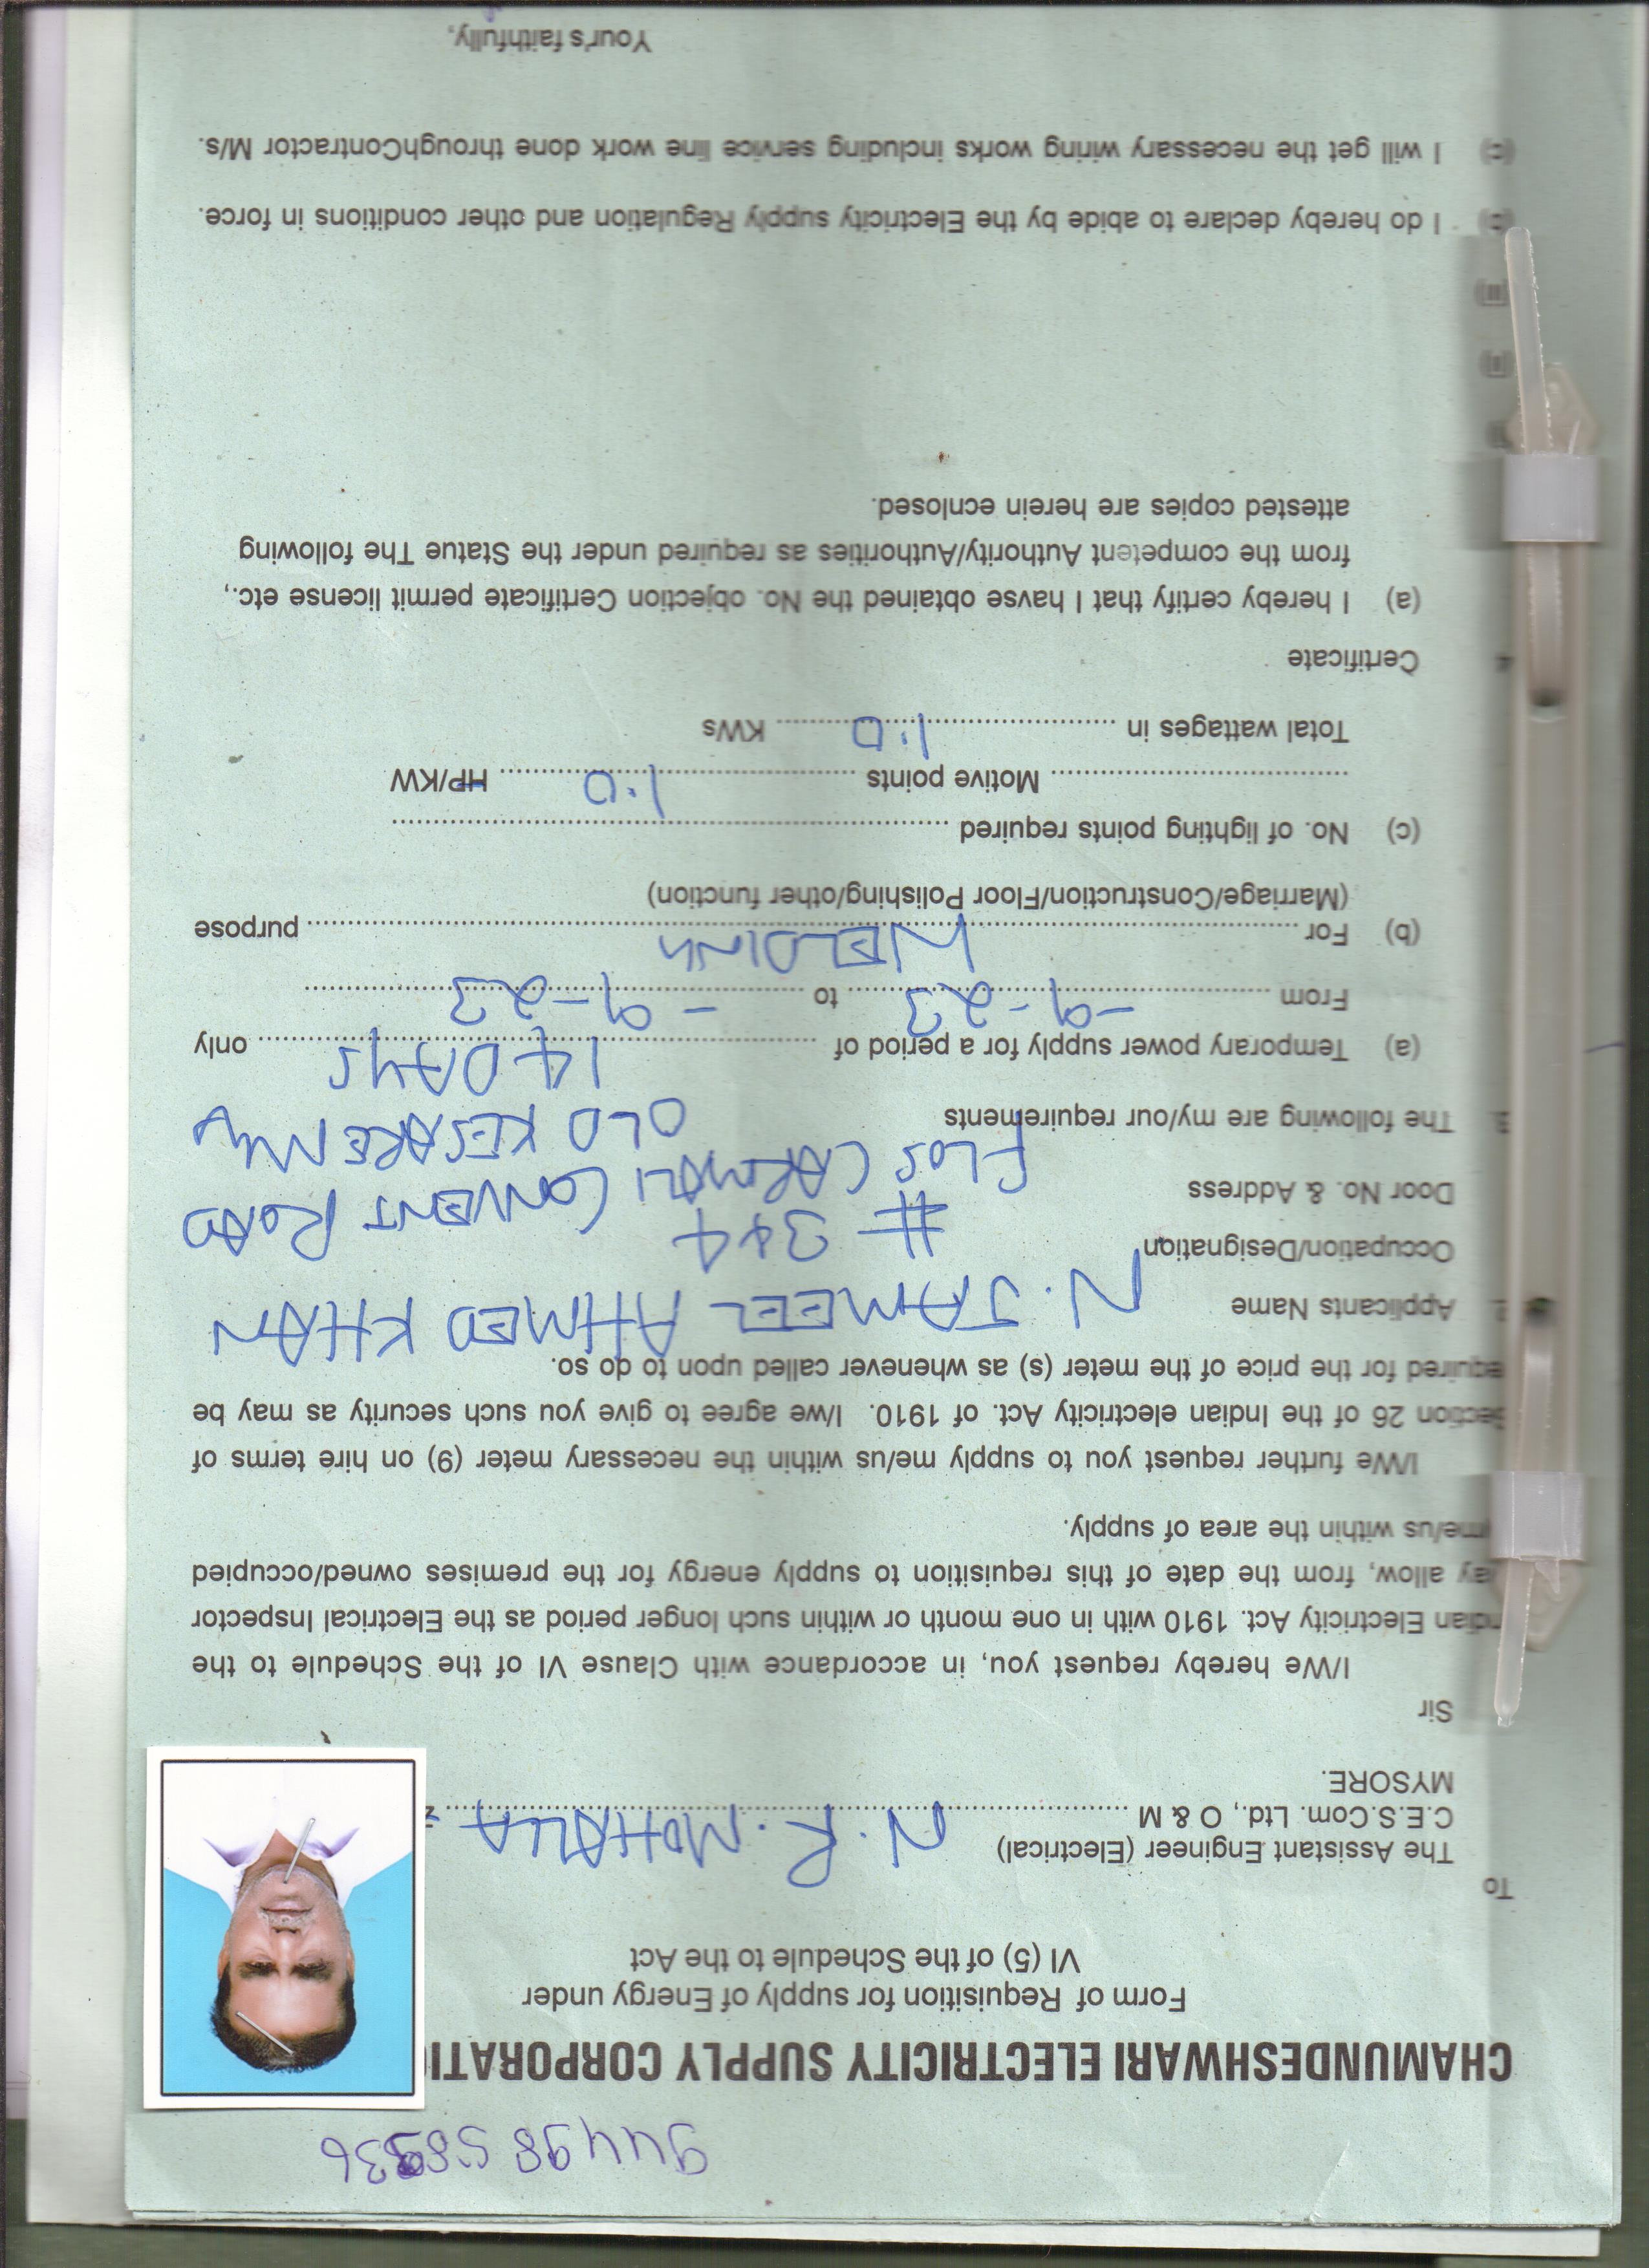 94498 58936
CHAMUNDESHWARI ELECTRICITY SUPPLY CORPORATI
Form of Requisition for supply of Energy under
VI (5) of the Schedule to the Act
To
The Assistant Engineer (Electrical)
C.E.S.Com. Ltd., O & M N. R. MOHALLA
MYSORE.
Sir
I/We hereby request you, in accordance with Clause VI of the Schedule to the
ndian Electricity Act. 1910 with in one month or within such longer period as the Electrical Inspector
ay allow, from the date of this requisition to supply energy for the premises owned/occupied
me/us within the area of supply.
I/We further request you to supply me/us within the necessary meter (9) on hire terms of
Section 26 of the Indian electricity Act. of 1910. I/we agree to give you such security as may be
equired for the price of the meter (s) as whenever called upon to do so.
2. Applicants Name N. JAMEEL AHMED KHAN
Occupation/Designation # 344
Door No. & Address FLOS CARMALI CONVENT ROAD
3. The following are my/our requirements OLD KESARE
(a) Temporary power supply for a period of 14 DAYS only
From -9-23 to -9-23
(b) For WELDING purpose
(Marriage/Construction/Floor Polishing/other function)
(c) No. of lighting points required
Motive points 1.0 HP/KW
Total wattages in 1.0 KWs
4 Certificate
(a) I hereby certify that I havse obtained the No. objection Certificate permit license etc.,
from the competent Authority/Authorities as required under the Statue The following
attested copies are herein ecnlosed.
(II)
(III)
(b) I do hereby declare to abide by the Electricity supply Regulation and other conditions in force.
(c) I will get the necessary wiring works including service line work done throughContractor M/s.
Your's faithfully,